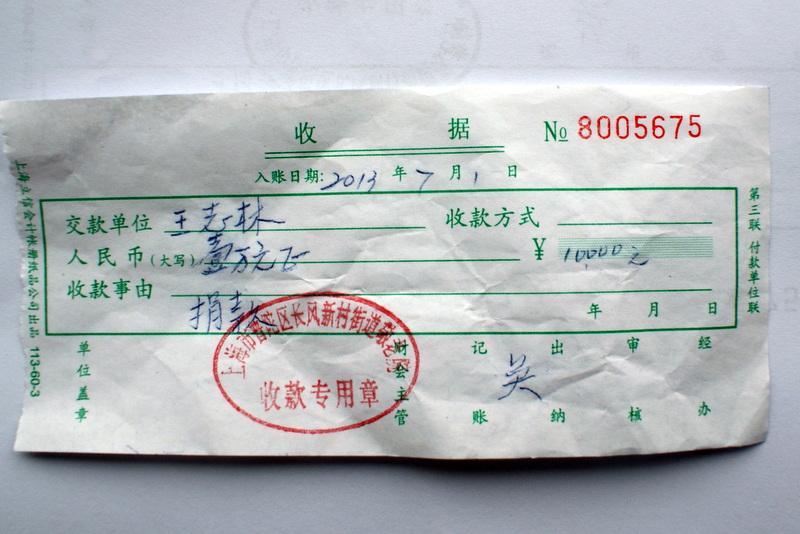 收 据 № 8005675
入账日期: 2013 年 7 月 1 日
交款单位 王志林 收款方式
人民币(大写) 壹万元正 ¥ 10000元
收款事由 捐款
年 月 日
第三联 付款单位联
单位盖章 财会主管 记账 出纳 吴 审核 经办
上海市普陀区长风新村街道敬老院
收款专用章
上海立信会计账册纸品公司出品 113-60-3